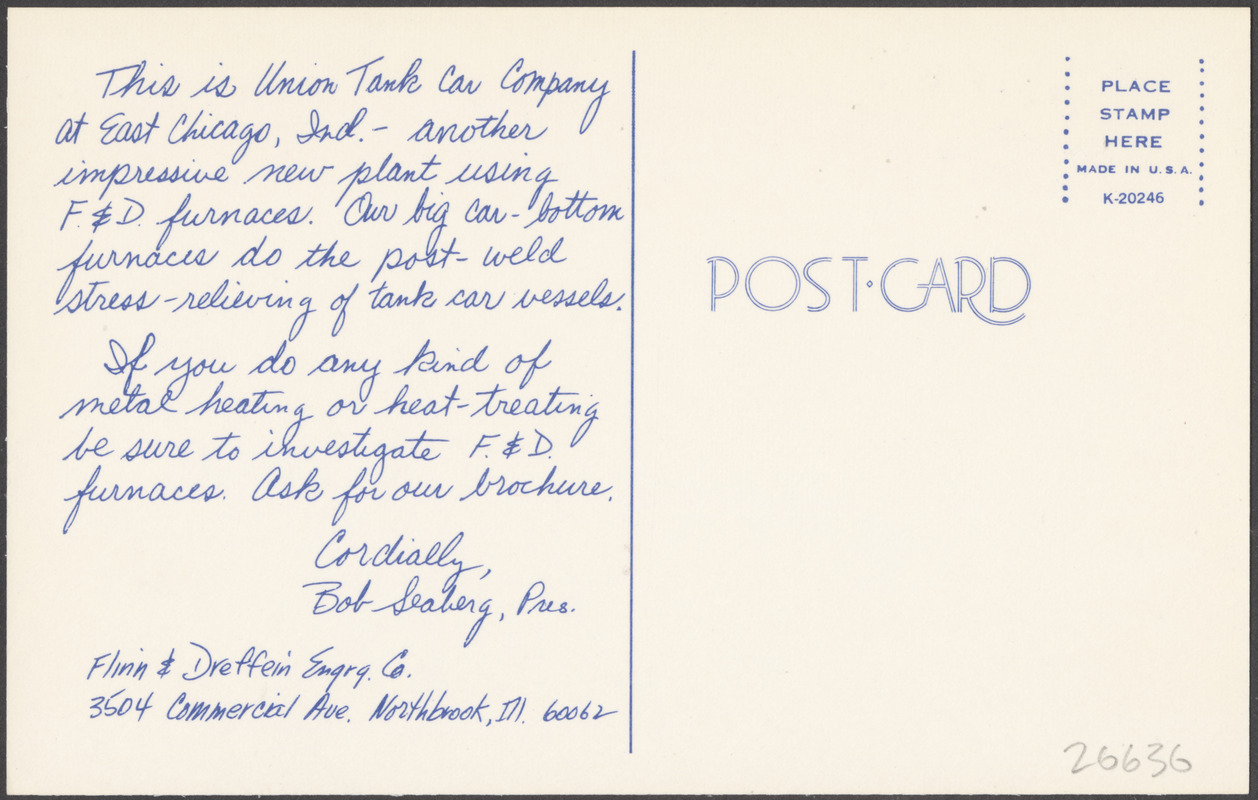 This is Union Tank Car Company
at East Chicago, Ind. - another
impressive new plant using
F. & D. furnaces. Our big car-bottom
furnaces do the post-weld
stress-relieving of tank car vessels.
If you do any kind of
metal heating or heat-treating
be sure to investigate F. & D.
furnaces. Ask for our brochure.
Cordially,
Bob Seaberg, Pres.
Flinn & Dreffein Engrg. Co.
3504 Commercial Ave. Northbrook, Ill. 60062
PLACE
STAMP
HERE
MADE IN U.S.A.
K-20246
POST·CARD
26636